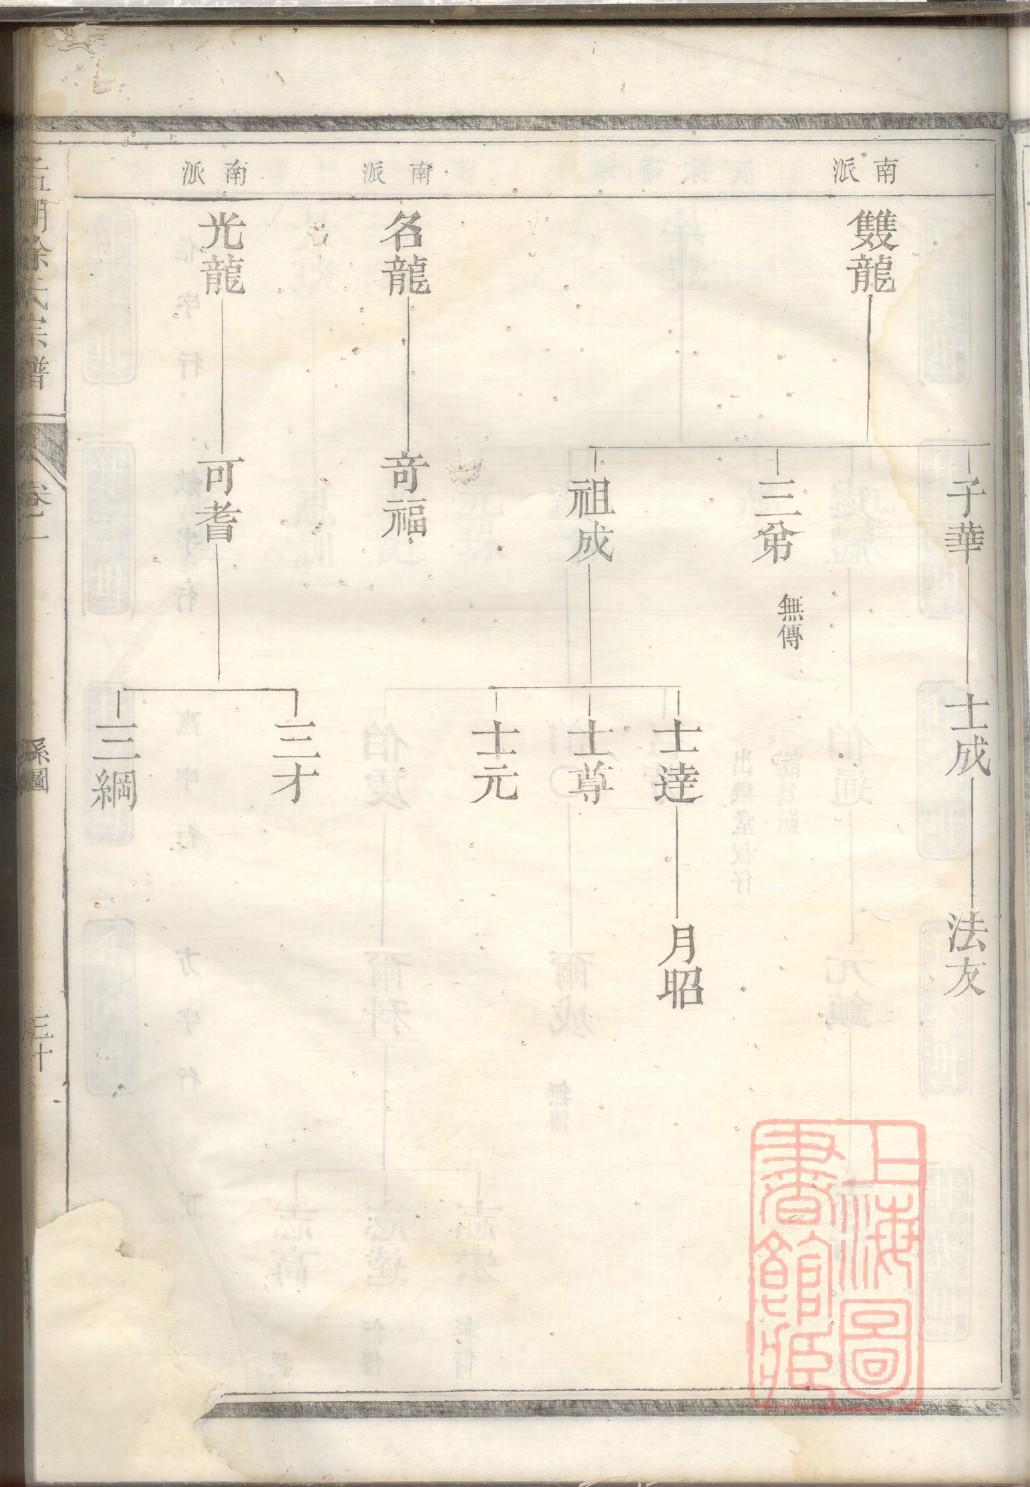 南派
雙龍
子華
三弟
無傳
祖成
士成
士達
士尊
士元
法友
月昭
南派
名龍
奇福
南派
光龍
可耆
三才
三綱
湖徐氏宗譜
卷二
系圖
三十
上海圖書館藏